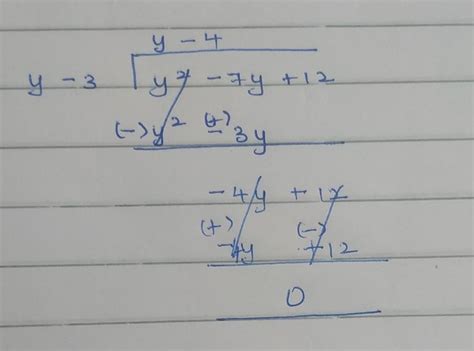 y - 4
y - 3 y² - 7y + 12
(-) y² (+) - 3y
- 4y + 12
(+) - 4y (-) + 12
0